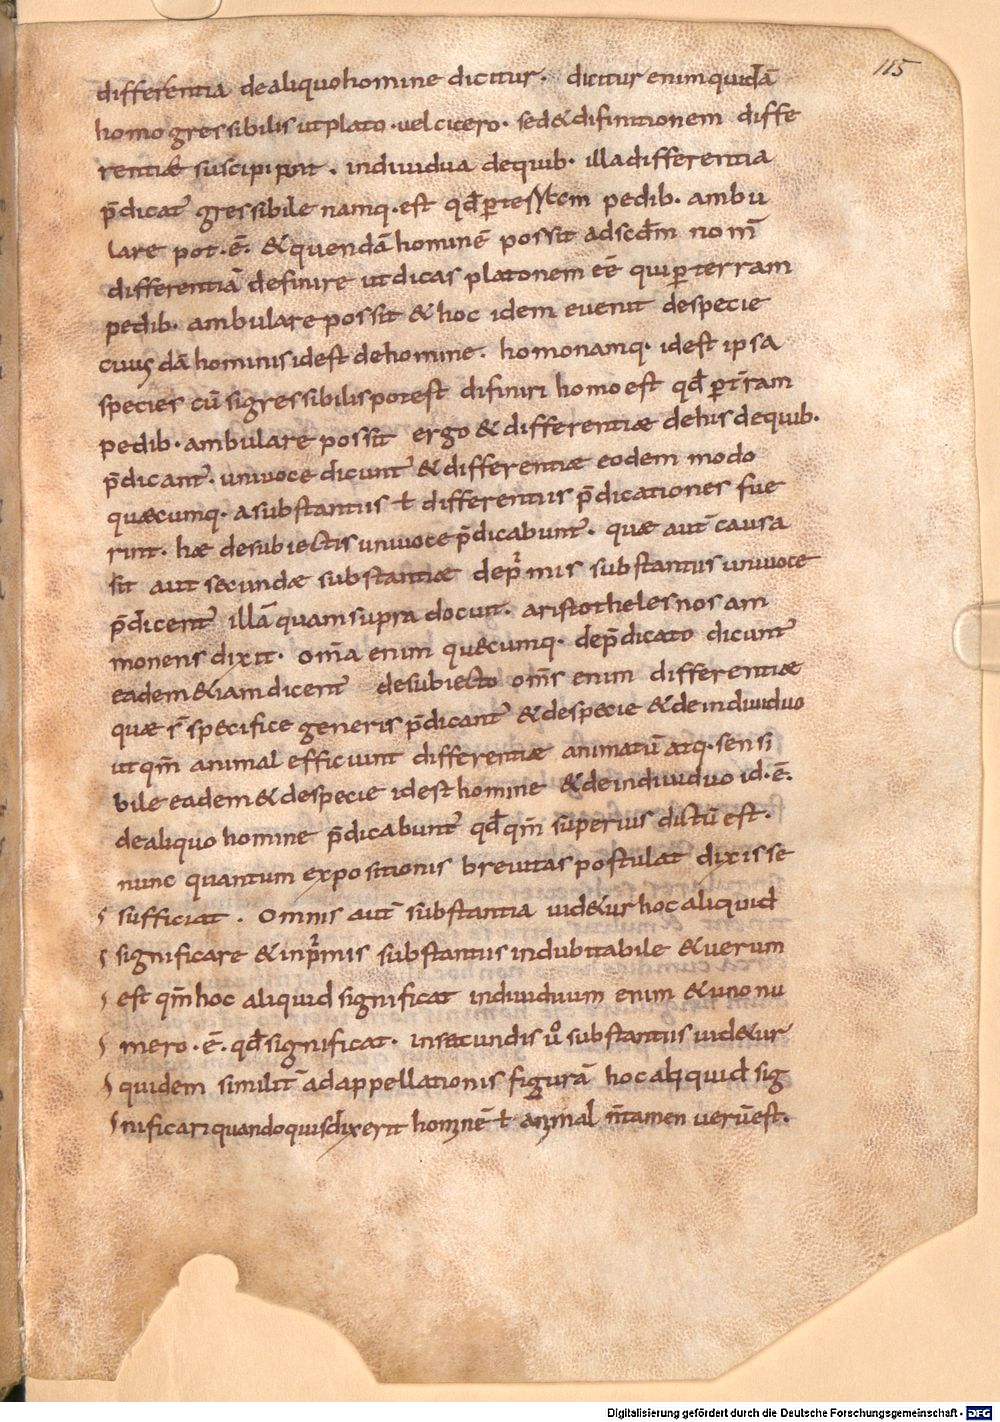 115
differentia dealiquohomine dicitur. dicitur enim quidā
homo gressibilis ut plato. uel cicero. sed & difinitionem diffe
rentiæ suscipipunt. indiuidua dequib. illa differentia
p̄dicat̄ gressibile namq. est qđ per pedib. ambu
lare pot. ē. & quendā hominē possit adsecđm nom̄
differentiā definire ut dicas platonem eē qui p̱ terram
pedib. ambulare possit & hoc idem euenit despecie
cuius dā hominis idest dehomine. homo namq. idest ipsa
species cū si gressibilis potest difiniri homo est qđ p̱ tr̄ram
pedib. ambulare possit ergo & differentiæ dehis dequib.
p̄dicant̄. uniuoce dicunt̄ & differentiæ eodem modo
quæcumq. a substantiis ł differentiis p̄dicationes fue
rint. hæ desubiectis uniuoce p̄dicabunt̄. quæ aut̄ causa
sit aut secundæ substantiæ depr̄mis substantiis uniuoce
p̄dicent̄ illā quam supra docuit. aristotheles nos am
monens dixit. om̄a enim quæcumq. dep̄dicato dicunt̄
eadem & iam dicent̄ desubiecto om̄s enim differentiæ
quæ s̄ specifice generis p̄dicant̄ & despecie & deindiuiduo
ut qm̄ animal efficiunt differentiæ animatū atq. sensi
bile eadem & despecie idest homine & deindiuiduo id. ē.
dealiquo homine p̄dicabunt̄ qđ qm̄ superius dictū est.
nunc quantum expositionis breuitas postulat dixisse
sufficiat. Omnis aut̄ substantia uid&ur hoc aliquid
significare & inpr̄mis substantiis indubitabile & uerum
est qm̄ hoc aliquid significat indiuiduum enim & uno nu
mero. ē. qđ significat. insecundis ů substantiis uid&ur
quidem similit̄ ad appellationis figurā hoc aliquid sig
nificari quando quis dixerit hominē ł animal n̄ tamen uerū est.
Digitalisierung gefördert durch die Deutsche Forschungsgemeinschaft - DFG